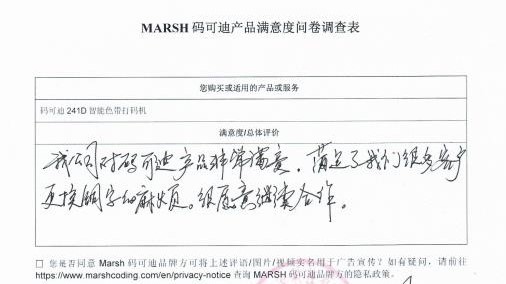 MARSH 码可迪产品满意度问卷调查表
您购买或适用的产品或服务
码可迪 241D 智能色带打码机
满意度/总体评价
我公司对码可迪产品非常满意，满足了我们很多客户
更换铜字的麻烦。很愿意继续合作。
□ 您是否同意 Marsh 码可迪品牌方可将上述评语/图片/视频实名用于广告宣传？如有疑问，请前往
https://www.marshcoding.com/en/privacy-notice 查询 MARSH 码可迪品牌方的隐私政策。